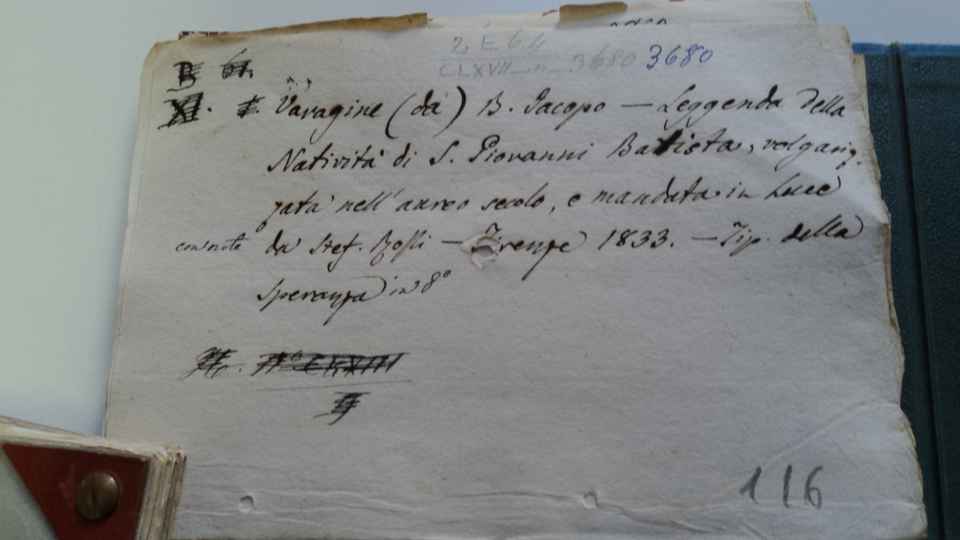 2. E 6.4
CLXVII n 3680 3680
B 61.
XI. Varagine (da) B. Jacopo — Leggenda della
Natività di S. Giovanni Batista, volgariz-
zata nell'aureo secolo, e mandata in Luce
con note da Stef. Rossi — Firenze 1833. — Tip. della
Speranza in 8°
116